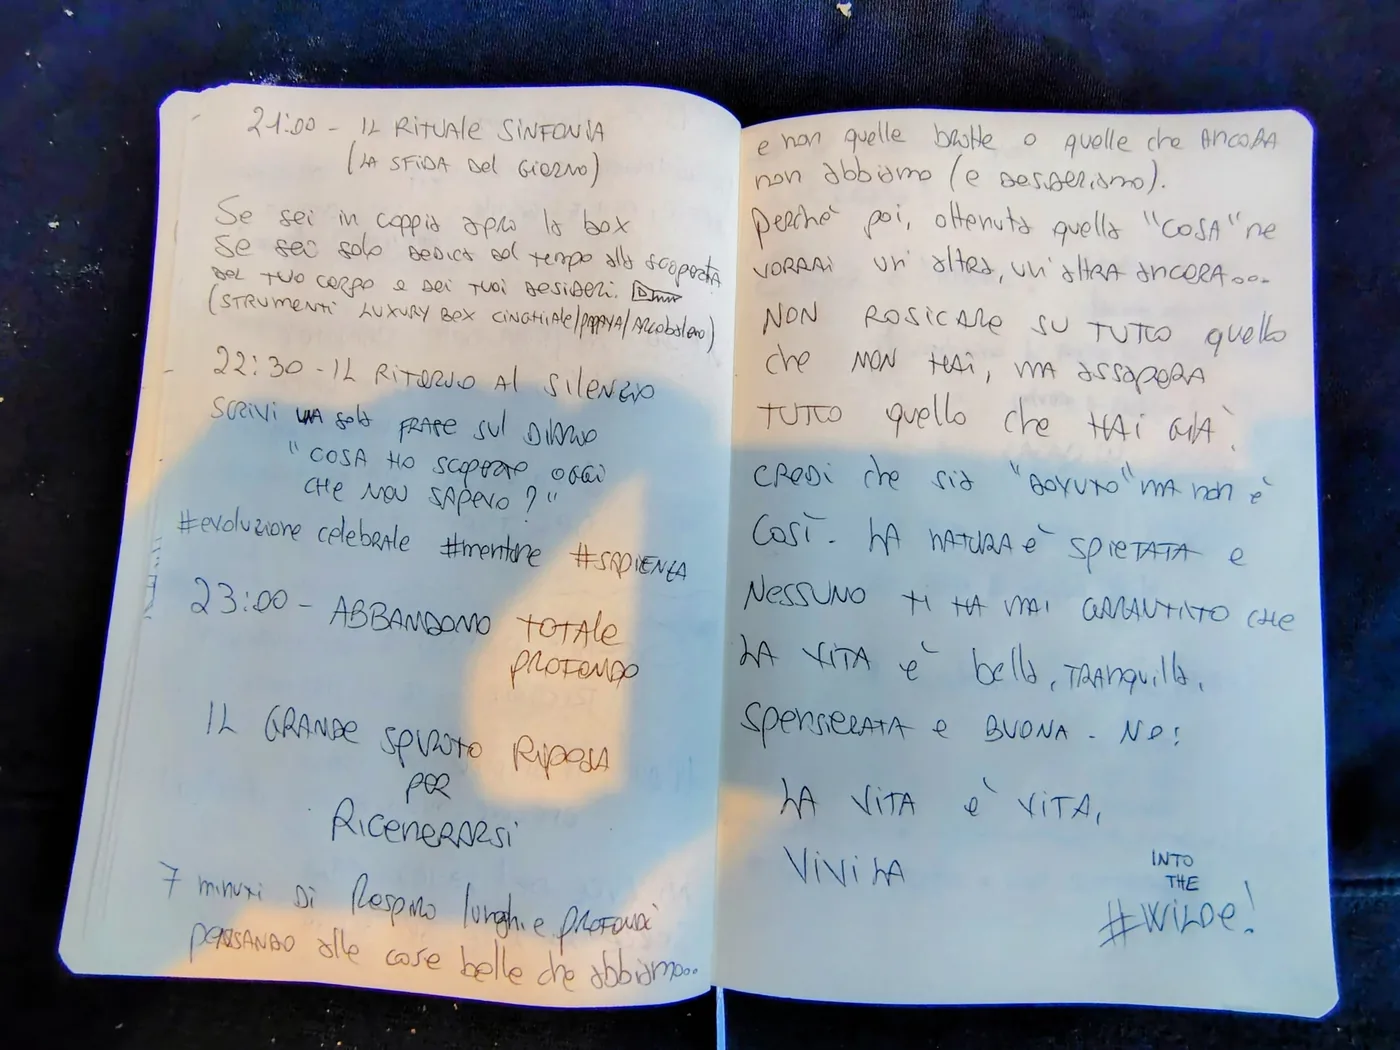 21:00 - IL RITUALE SINFONIA
(LA SFIDA DEL GIORNO)
Se sei in coppia apri la box
Se sei solo DEDICA del tempo alla scoperta
DEL TUO CORPO e DEI TUOI DESIDERI.
(STRUMENTI LUXURY BOX CINGHIALE/PAPAYA/ARCOBALENO)
22:30 - IL RITORNO AL SILENZIO
SCRIVI UNA sola FRASE SUL DIARIO
"COSA HO SCOPERTO OGGI
CHE NON SAPEVO?"
#evoluzione celebrale #mentore #SAPIENZA
23:00 - ABBANDONO TOTALE
PROFONDO
IL GRANDE SPIRITO RIPOSA
PER
RIGENERARSI
7 minuti DI Respiro lunghi e PROFONDI
PENSANDO alle cose belle che abbiamo...
e non quelle brutte o quelle che ANCORA
non abbiamo (e DESIDERIAMO).
Perchè poi, ottenuta quella "COSA" ne
VORRAI un'altra, un'altra ANCORA...
NON ROSICARE SU TUTTO quello
che NON HAI, MA ASSAPORA
TUTTO quello che HAI GIÀ.
CREDI che sia "DOVUTO" MA non è
COSÌ. LA NATURA è SPIETATA e
NESSUNO TI HA MAI GARANTITO CHE
LA VITA è bella, TRANquilla,
SPENSIERATA e BUONA - NO!
LA VITA è VITA,
VIVILA
INTO
THE
#WILDe!